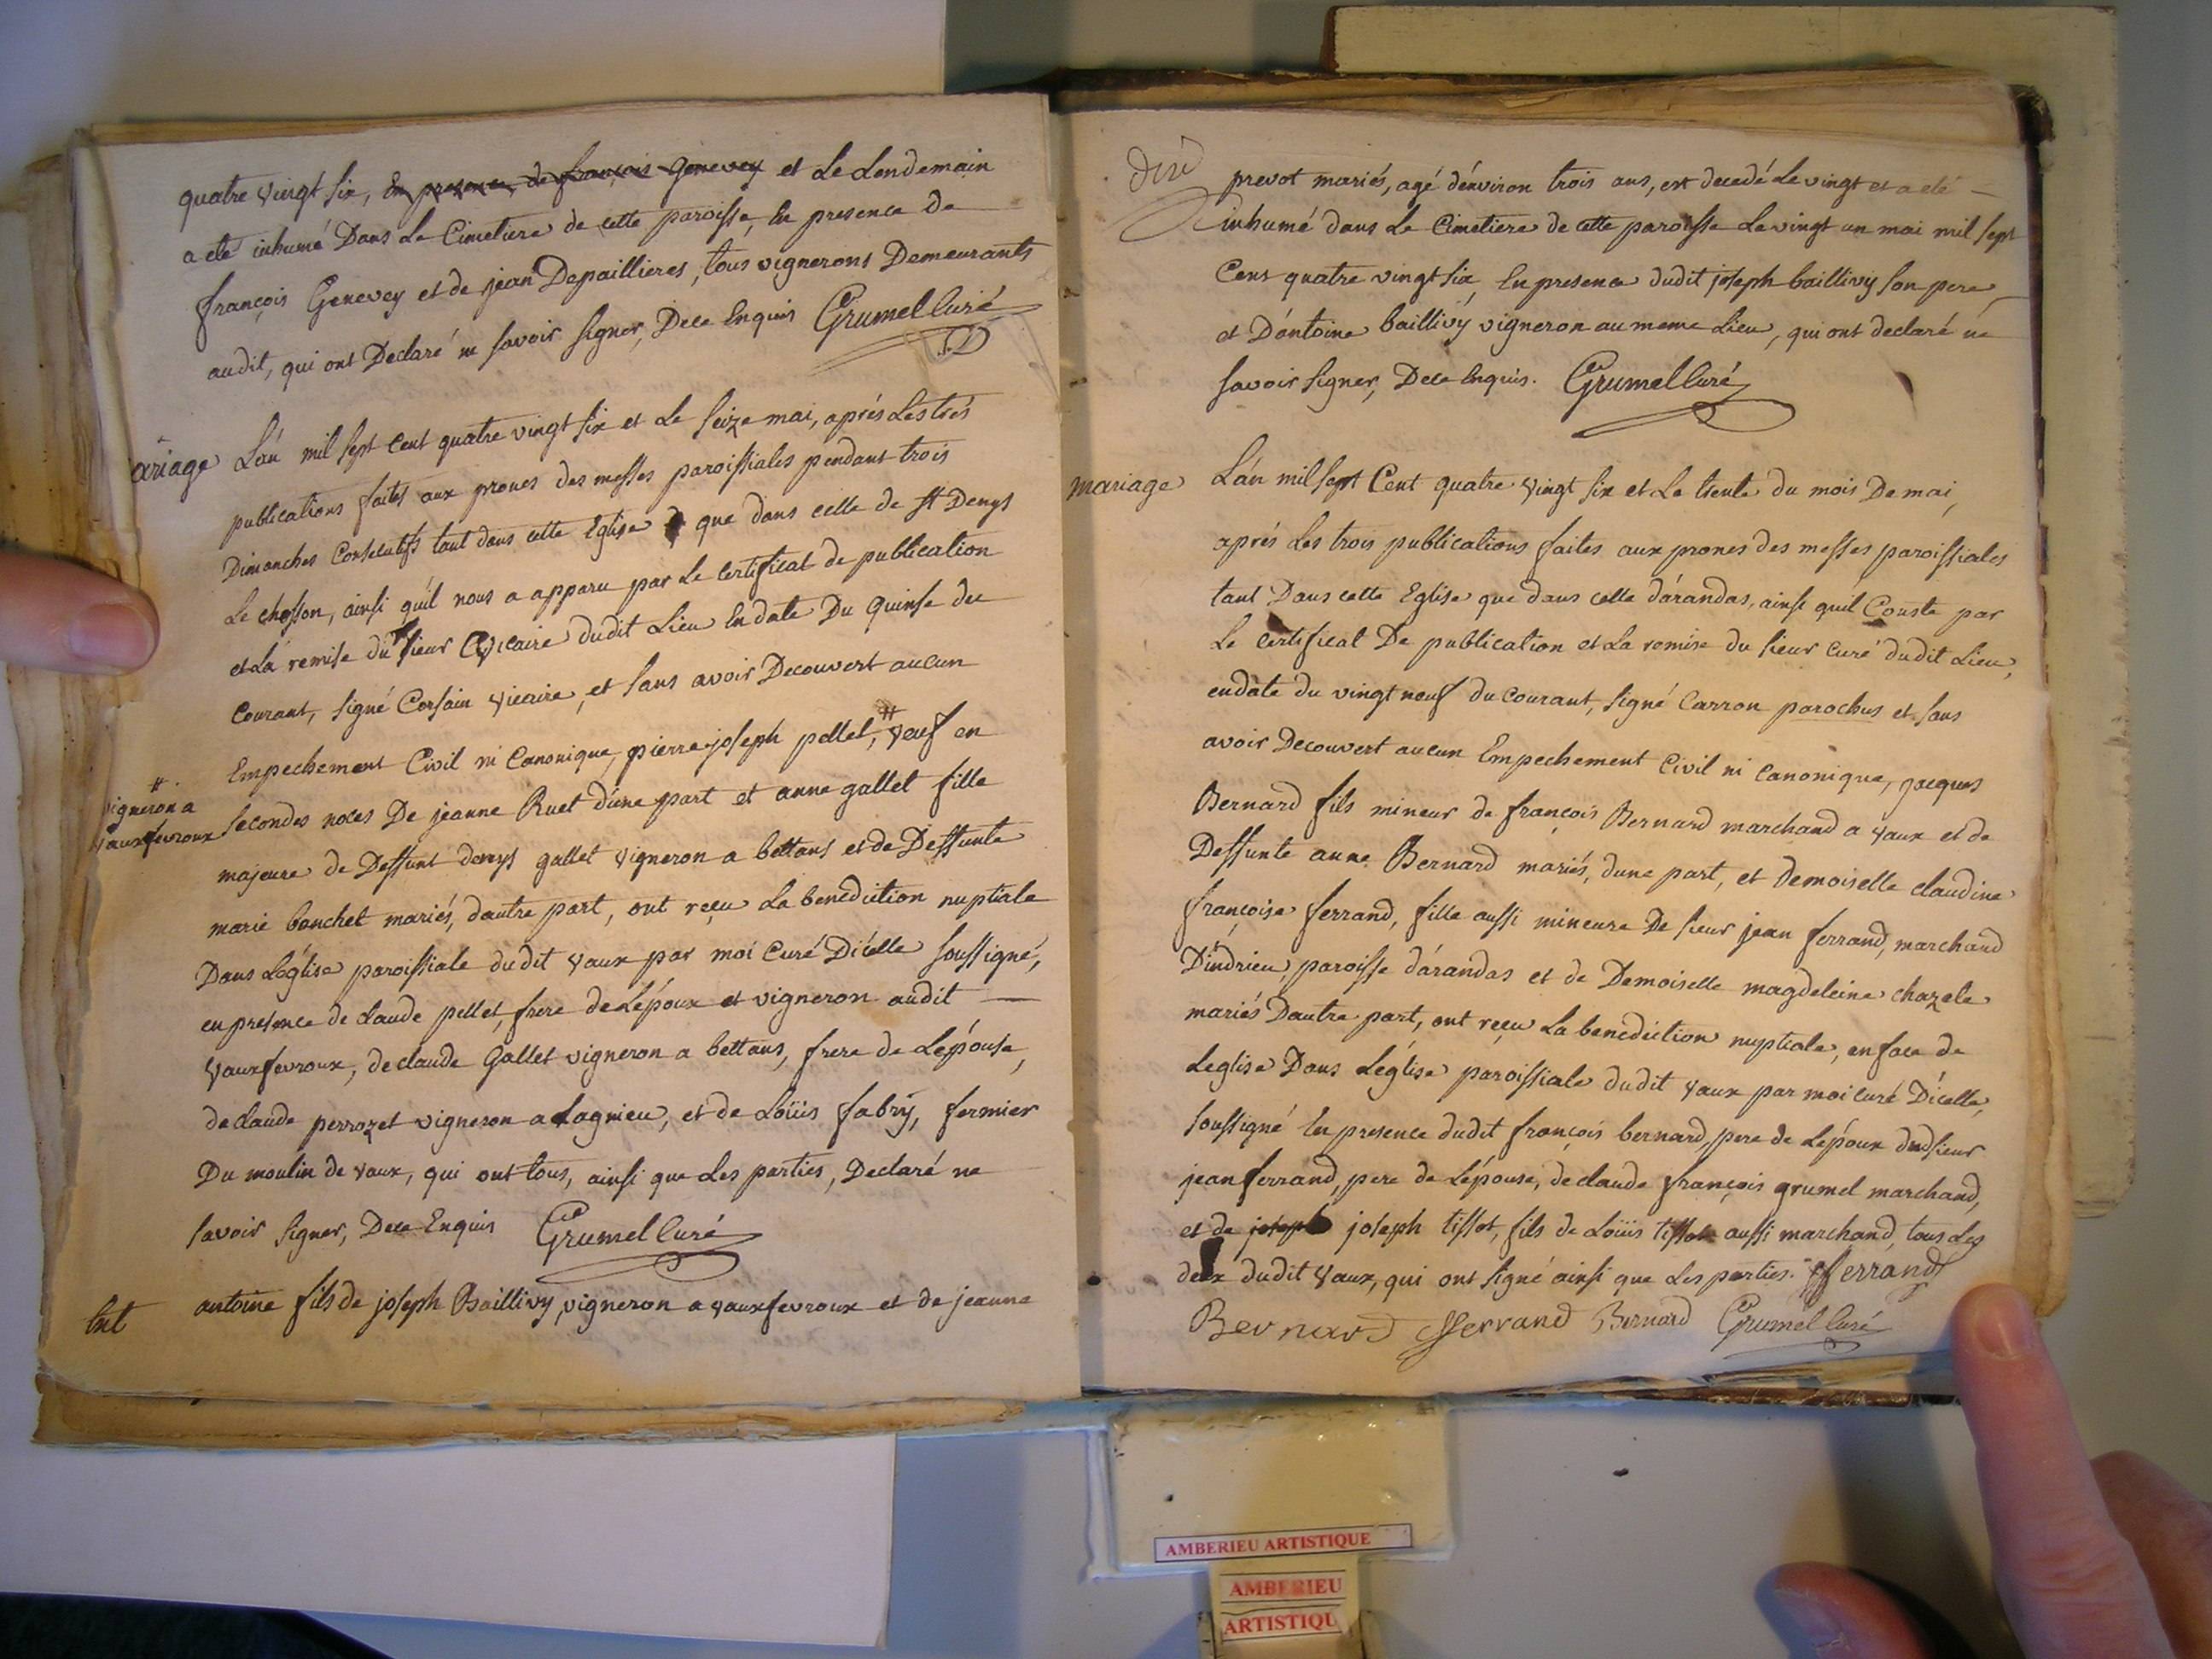 quatre vingt six, En presence de françois Genevey et Le Lendemain
a eté inhumé Dans Le Cimetiere de cette paroisse, En presence de
françois Genevey et de jean Depaillieres, tous vignerons Demeurants
audit, qui ont Declaré ne savoir signer, Dece Enquis Grumel Curé
ariage L'an mil sept cent quatre vingt six et Le seize mai, aprés Les trés
publications faites aux prones des messes paroissiales pendant trois
Dimanches Consecutifs tant dans cette Eglise que dans celle de St Denys
Le chosson, ainsi qu'il nous a apparu par Le certificat de publication
et La remise du sieur Vicaire dudit Lieu En date Du Quinse du
Courant, signé Corsain vicaire, et sans avoir Decouvert aucun
Empechement Civil ni Canonique, pierre joseph pellet, # veuf en
# vigneron a
vauxfevroux
secondes noces De jeanne Ruet d'une part et anne gallet fille
majeure de Deffunt denys gallet vigneron a bettans et de Deffunte
marie banchet mariés, dautre part, ont reçu La benediction nuptiale
Dans L'eglise paroissiale dudit vaux par moi Curé D'icelle soussigné,
en presence de claude pellet, frere de L'époux et vigneron audit —
vauxfevroux, de claude Gallet vigneron a bettans, frere de L'épouse,
de claude perrozet vigneron a Lagnieu, et de Loüis fabry, fermier
Du moulin de vaux, qui ont tous, ainsi que Les parties, Declaré ne
savoir signer, Dece Enquis Grumel Curé
Ent antoine fils de joseph Baillivy, vigneron a vauxfevroux et de jeanne
prevot mariés, agé d'environ trois ans, est decedé Le vingt et a eté —
inhumé dans Le Cimetiere de cette paroisse Le vingt un mai mil sept
Cent quatre vingt six, En presence dudit joseph baillivy son pere
et D'antoine baillivy vigneron au meme Lieu, qui ont declaré ne
savoir signer, Dece Enquis. Grumel Curé
mariage L'an mil sept Cent quatre vingt six et Le trente du mois De mai,
aprés Les trois publications faites aux prones des messes paroissiales
tant Dans cette Eglise que dans celle d'arandas, ainsi quil Conste par
Le certificat De publication et La remise du sieur curé dudit Lieu,
endate du vingt neuf du courant, signé Carron parochus et sans
avoir Decouvert aucun Empechement Civil ni canonique, jacques
Bernard fils mineur de françois Bernard marchand a vaux et de
Deffunte anne Bernard mariés, dune part, et Demoiselle claudine
françoise ferrand, fille aussi mineure De sieur jean ferrand, marchand
D'indrieu, paroisse d'arandas et de Demoiselle magdeleine chazele
mariés Dautre part, ont reçu La benediction nuptiale, en face de
Leglise Dans L'église paroissiale dudit vaux par moi curé D'icelle,
soussigné En presence dudit françois bernard, pere de L'époux dudsieur
jean ferrand, pere de L'épouse, de claude françois grumel marchand,
et de joseph joseph tissot, fils de Loüis tissot aussi marchand, tous Les
deux dudit vaux, qui ont signé ainsi que Les parties. fferrand
Bernard fferrand Bernard Grumel Curé
AMBERIEU ARTISTIQUE
AMBERIEU
ARTISTIQU